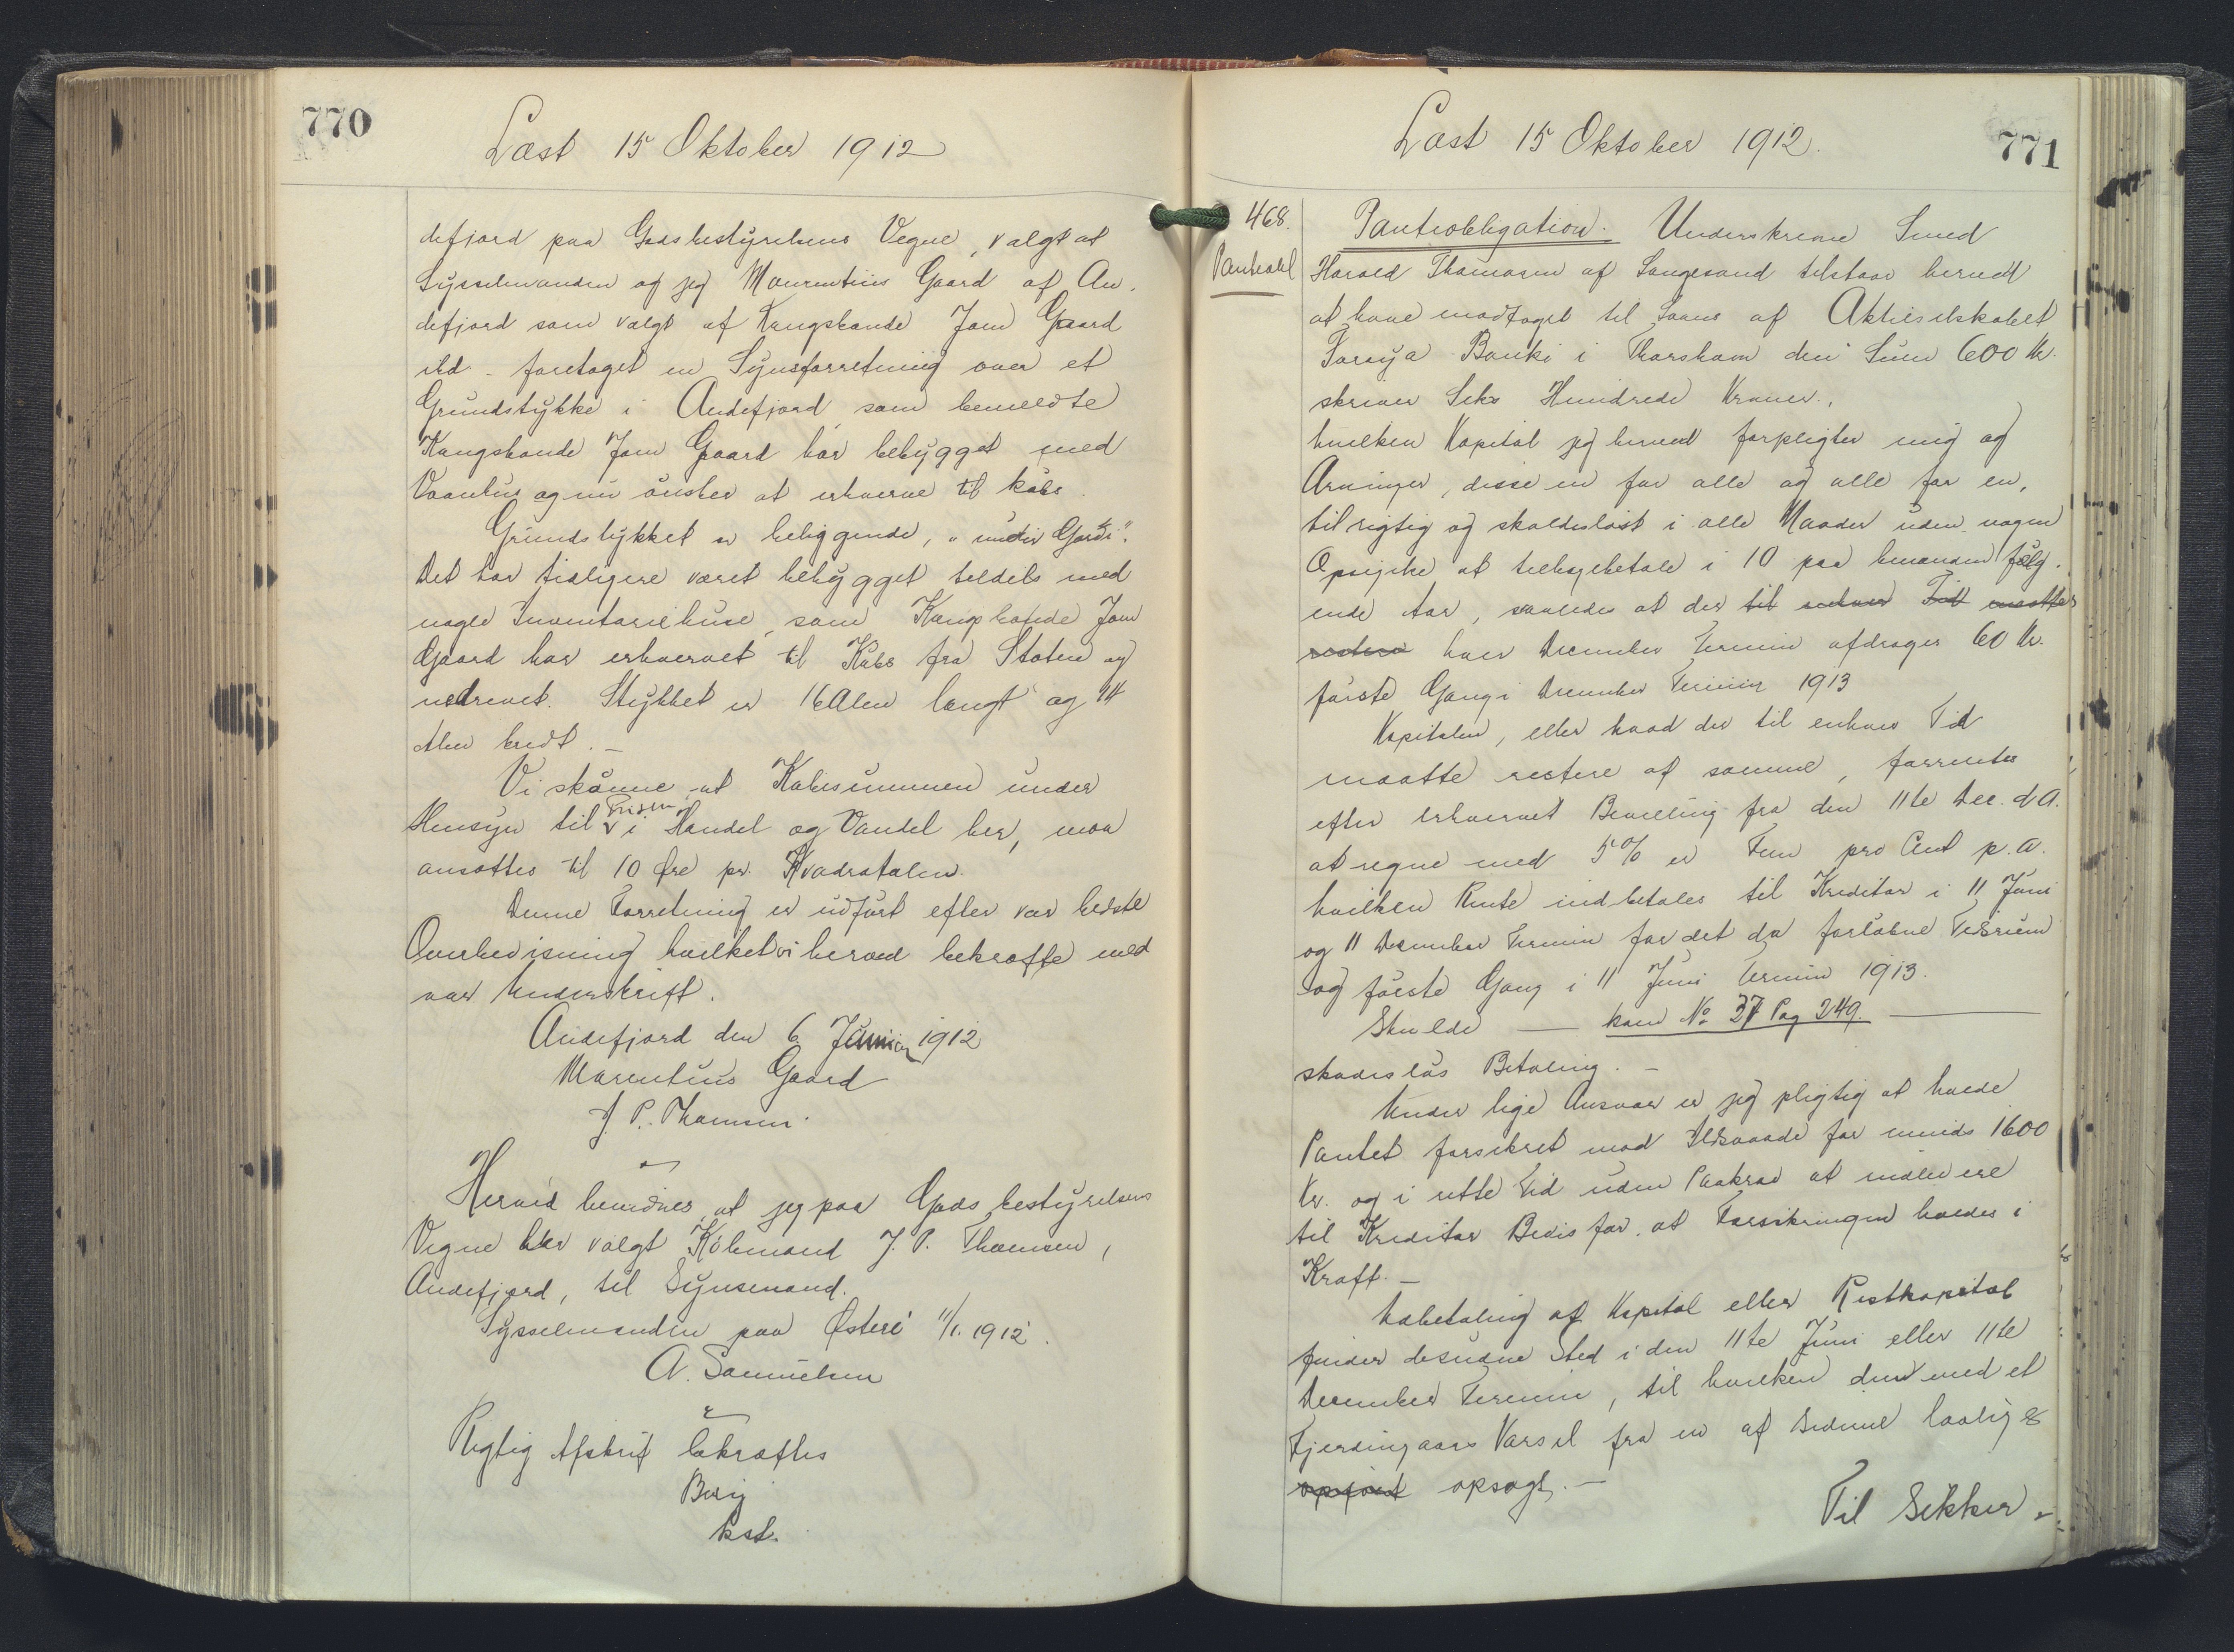 770
Læst 15 Oktober 1912
defjord paa Godsbestyrelsens Vegne, valgt af
Sysselmanden og jeg Maurentius Gaard af An-
defjord som valgt af Kongsbonde Joen Gaard
ibd. - foretaget en Synsforretning over et
Grundstykke i Andefjord, som bemeldte
Kongsbonde Joen Gaard har bebygget med
Vaanhus og nu ønsker at erhverve til Købs.
Grundstykket er beliggende, "undir Gardi".
Det har tidligere været bebygget teldels med
nogle Inventariehuse, som Kongsbonde Joen
Gaard har erhvervet til Købs fra Staten og
nedrevet. Stykket er 16 Alen langt og 14
Alen bredt. -
Vi skønne at Købesummen under
Hensyn til Prisen i Handel og Vandel her, maa
ansættes til 10 Øre pr. Kvadratalen.
Denne Forretning er udført efter vor bedste
Overbevisning hvilket vi herved bekræfte med
vor Underskrift.
Andefjord den 6 Januar 1912
Marentius Gaard
J. P. Thomsen.
Herved bevidnes, at jeg paa Godsbestyrelsens
Vegne har valgt Købmand J. P. Thomsen,
Andefjord, til Synsmand.
Sysselmanden paa Østerö 11/1. 1912.
A. Samuelsen
Rigtig Afskrift bekræftes
Berg
kst.
771
Læst 15 Oktober 1912.
468.
Panteobl
Panteobligation. Underskrevne Smed
Harald Thomasen af Sangesand tilstaar herved
at have modtaget til Laans af Aktieselskabet
Føroya Banki i Thorshavn den Sum 600 Kr.
skriver Seks Hundrede Kroner.,
hvilken Kapital jeg herved forpligter mig og
Arvinger, disse en for alle og alle for en,
til rigtig og skadesløst i alle Maader uden nogen
Opsigelse at tilbagebetale i 10 paa hinanden følg-
ende Aar, saaledes at der til enhver Tid maatte
restere hver December Termin afdrages 60 Kr.
første Gang i December Termin 1913
Kapitalen, eller hvad der til enhver Tid
maatte restere af samme, forrentes
efter erhvervet Bevilling fra den 11te Dec. d A.
at regne med 5% er Fem pro Cent p.a.
hvilken Rente indbetales til Kreditor i 11 Juni
og 11 December Termin for det da forløbne Tidsrum
og første Gang i 11 Juni Termin 1913.
Skulde — kom No 37 Pag 249. —
skadesløs Betaling. -
Under lige Ansvar er jeg pligtig at holde
Pantet forsikret mod Ildsvaade for minds 1600
Kr. og i rette Tid uden Paakrav at indlevere
til Kreditor Bevis for, at Forsikringen holdes i
Kraft. -
Udbetaling af Kapital eller Restkapital
finder desudne Sted i den 11te Juni eller 11te
December Termin, til hvilken den med et
Fjerdingaars Varsel fra en af Siderne lovlig er
opsagt. -
Til Sikker-